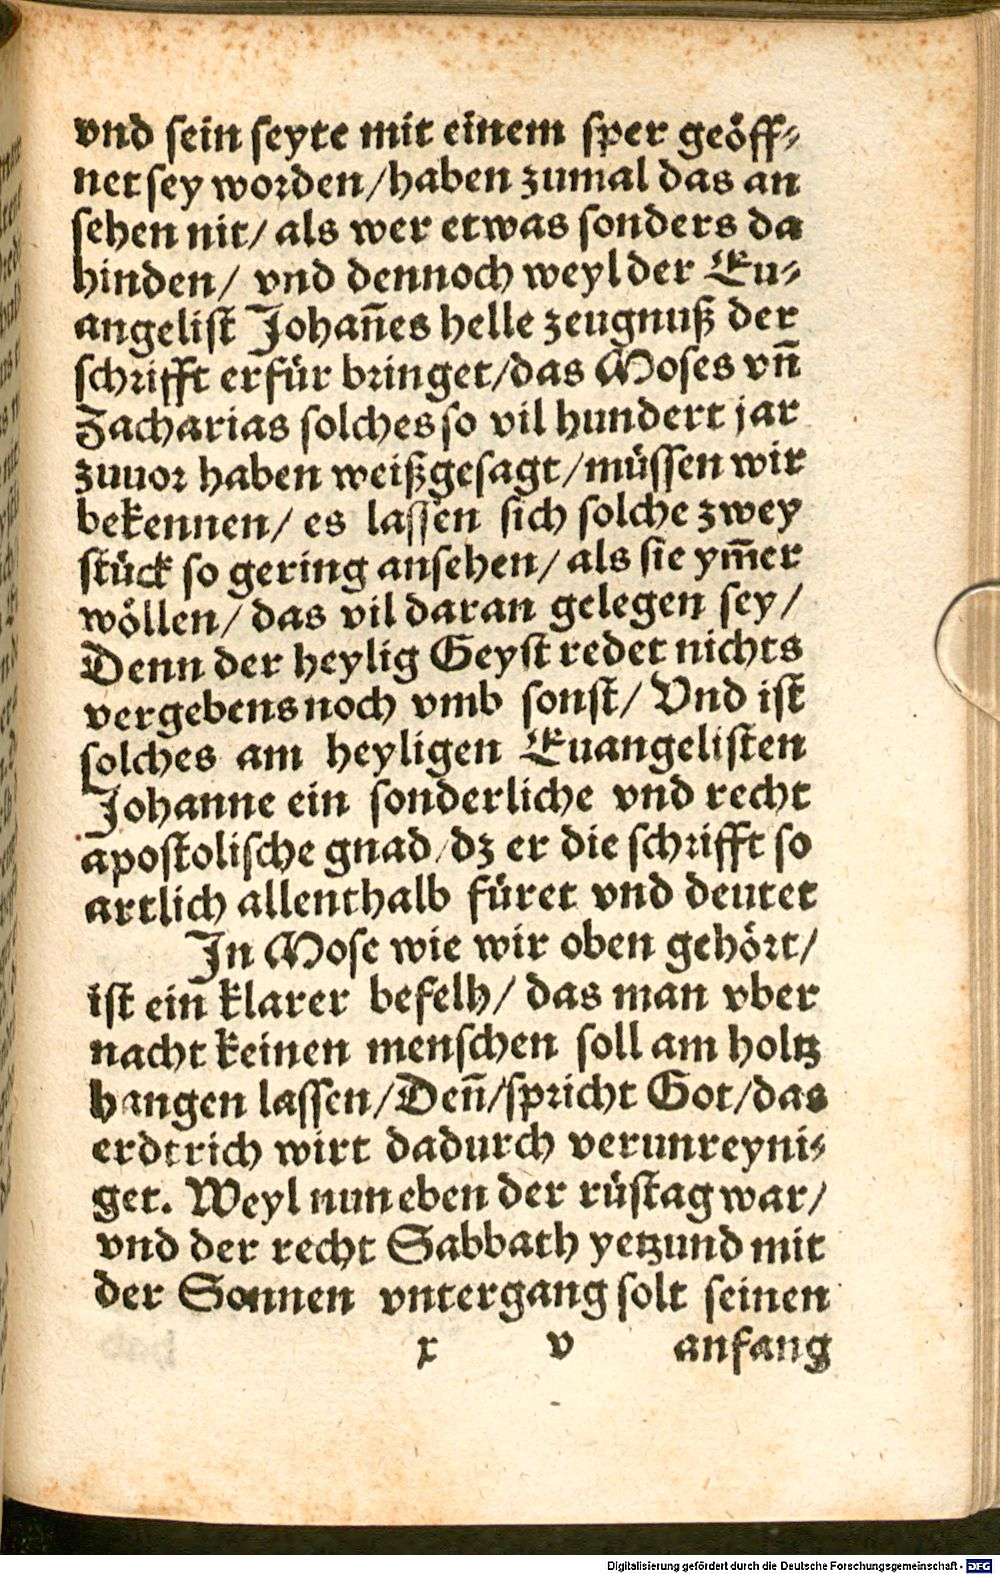 vnd sein seyte mit einem sper geöff⸗
net sey worden/haben zumal das an
sehen nit/ als wer etwas sonders da
hinden/ vnd dennoch weyl der Eu⸗
angelist Johañes helle zeugnuß der
schrifft erfür bringet/das Moses vñ
Zacharias solches so vil hundert jar
zuuor haben weißgesagt/müssen wir
bekennen/ es lassen sich solche zwey
stück so gering ansehen/ als sie ym̄er
wöllen/ das vil daran gelegen sey/
Denn der heylig Geyst redet nichts
vergebens noch vmb sonst/ Vnd ist
solches am heyligen Euangelisten
Johanne ein sonderliche vnd recht
apostolische gnad/dz er die schrifft so
artlich allenthalb füret vnd deutet
In Mose wie wir oben gehört/
ist ein klarer befelh/ das man vber
nacht keinen menschen soll am holtz
hangen lassen/Deñ/spricht Got/das
erdtrich wirt dadurch verunreyni⸗
get. Weyl nun eben der rüstag war/
vnd der recht Sabbath yetzund mit
der Sonnen vntergang solt seinen
x v anfang
Digitalisierung gefördert durch die Deutsche Forschungsgemeinschaft - DFG